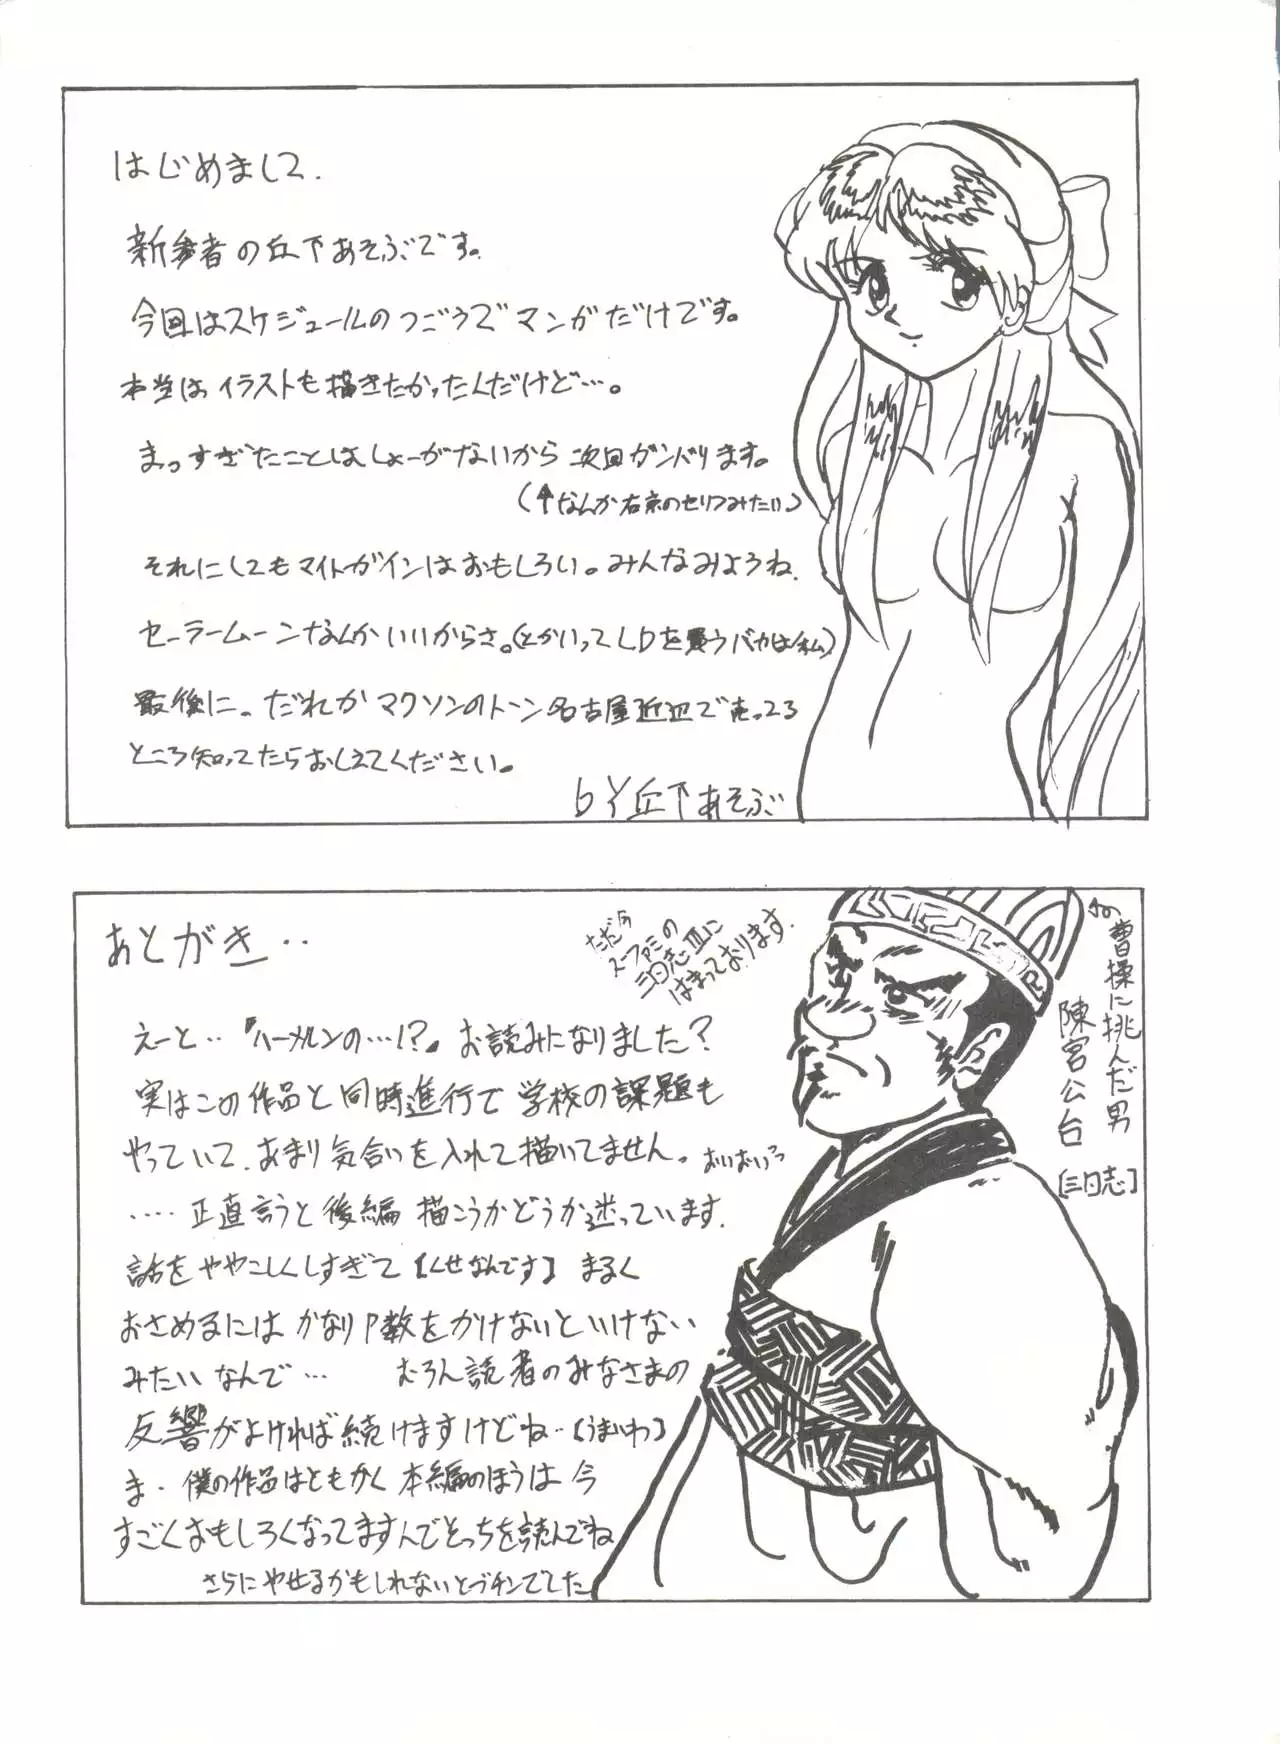 はじめまして.
新参者の丘下あそぶです。
今回はスケジュールのつごうでマンガだけです。
本当はイラストも描きたかったんだけど…。
まっすぎたことはしょーがないから次回ガンバります。
(↑なんか右京のセリフみたい)
それにしてもマイトガインはおもしろい。みんなみようね.
セーラームーンなんかいいからさ。(とかいってLDを買うバカは私)
最後に。だれかマクソンのトーン名古屋近辺で売ってる
ところ知ってたらおしえてください。
bY丘下あそぶ
あとがき・・
ただ今
スーファミの
三国志Ⅲに
はまっております.
曹操に挑んだ男
陳宮公台
[三国志]
えーと・・『ハーメルンの…!?』お読みになりました?
実はこの作品と同時進行で学校の課題も
やっていて、あまり気合いを入れて描いてません。おいおいっ
・・・・正直言うと後編描こうかどうか迷っています.
話をややこしくしすぎて【くせなんです】まるく
おさめるには かなりP数をかけないといけない
みたいなんで… むろん読者のみなさまの
反響がよければ続けますけどね・・【うまいわ】
ま・僕の作品はともかく本編のほうは今
すごくおもしろくなってますんでそっちを読んでね
さらにやせるかもしれないとブチンででした